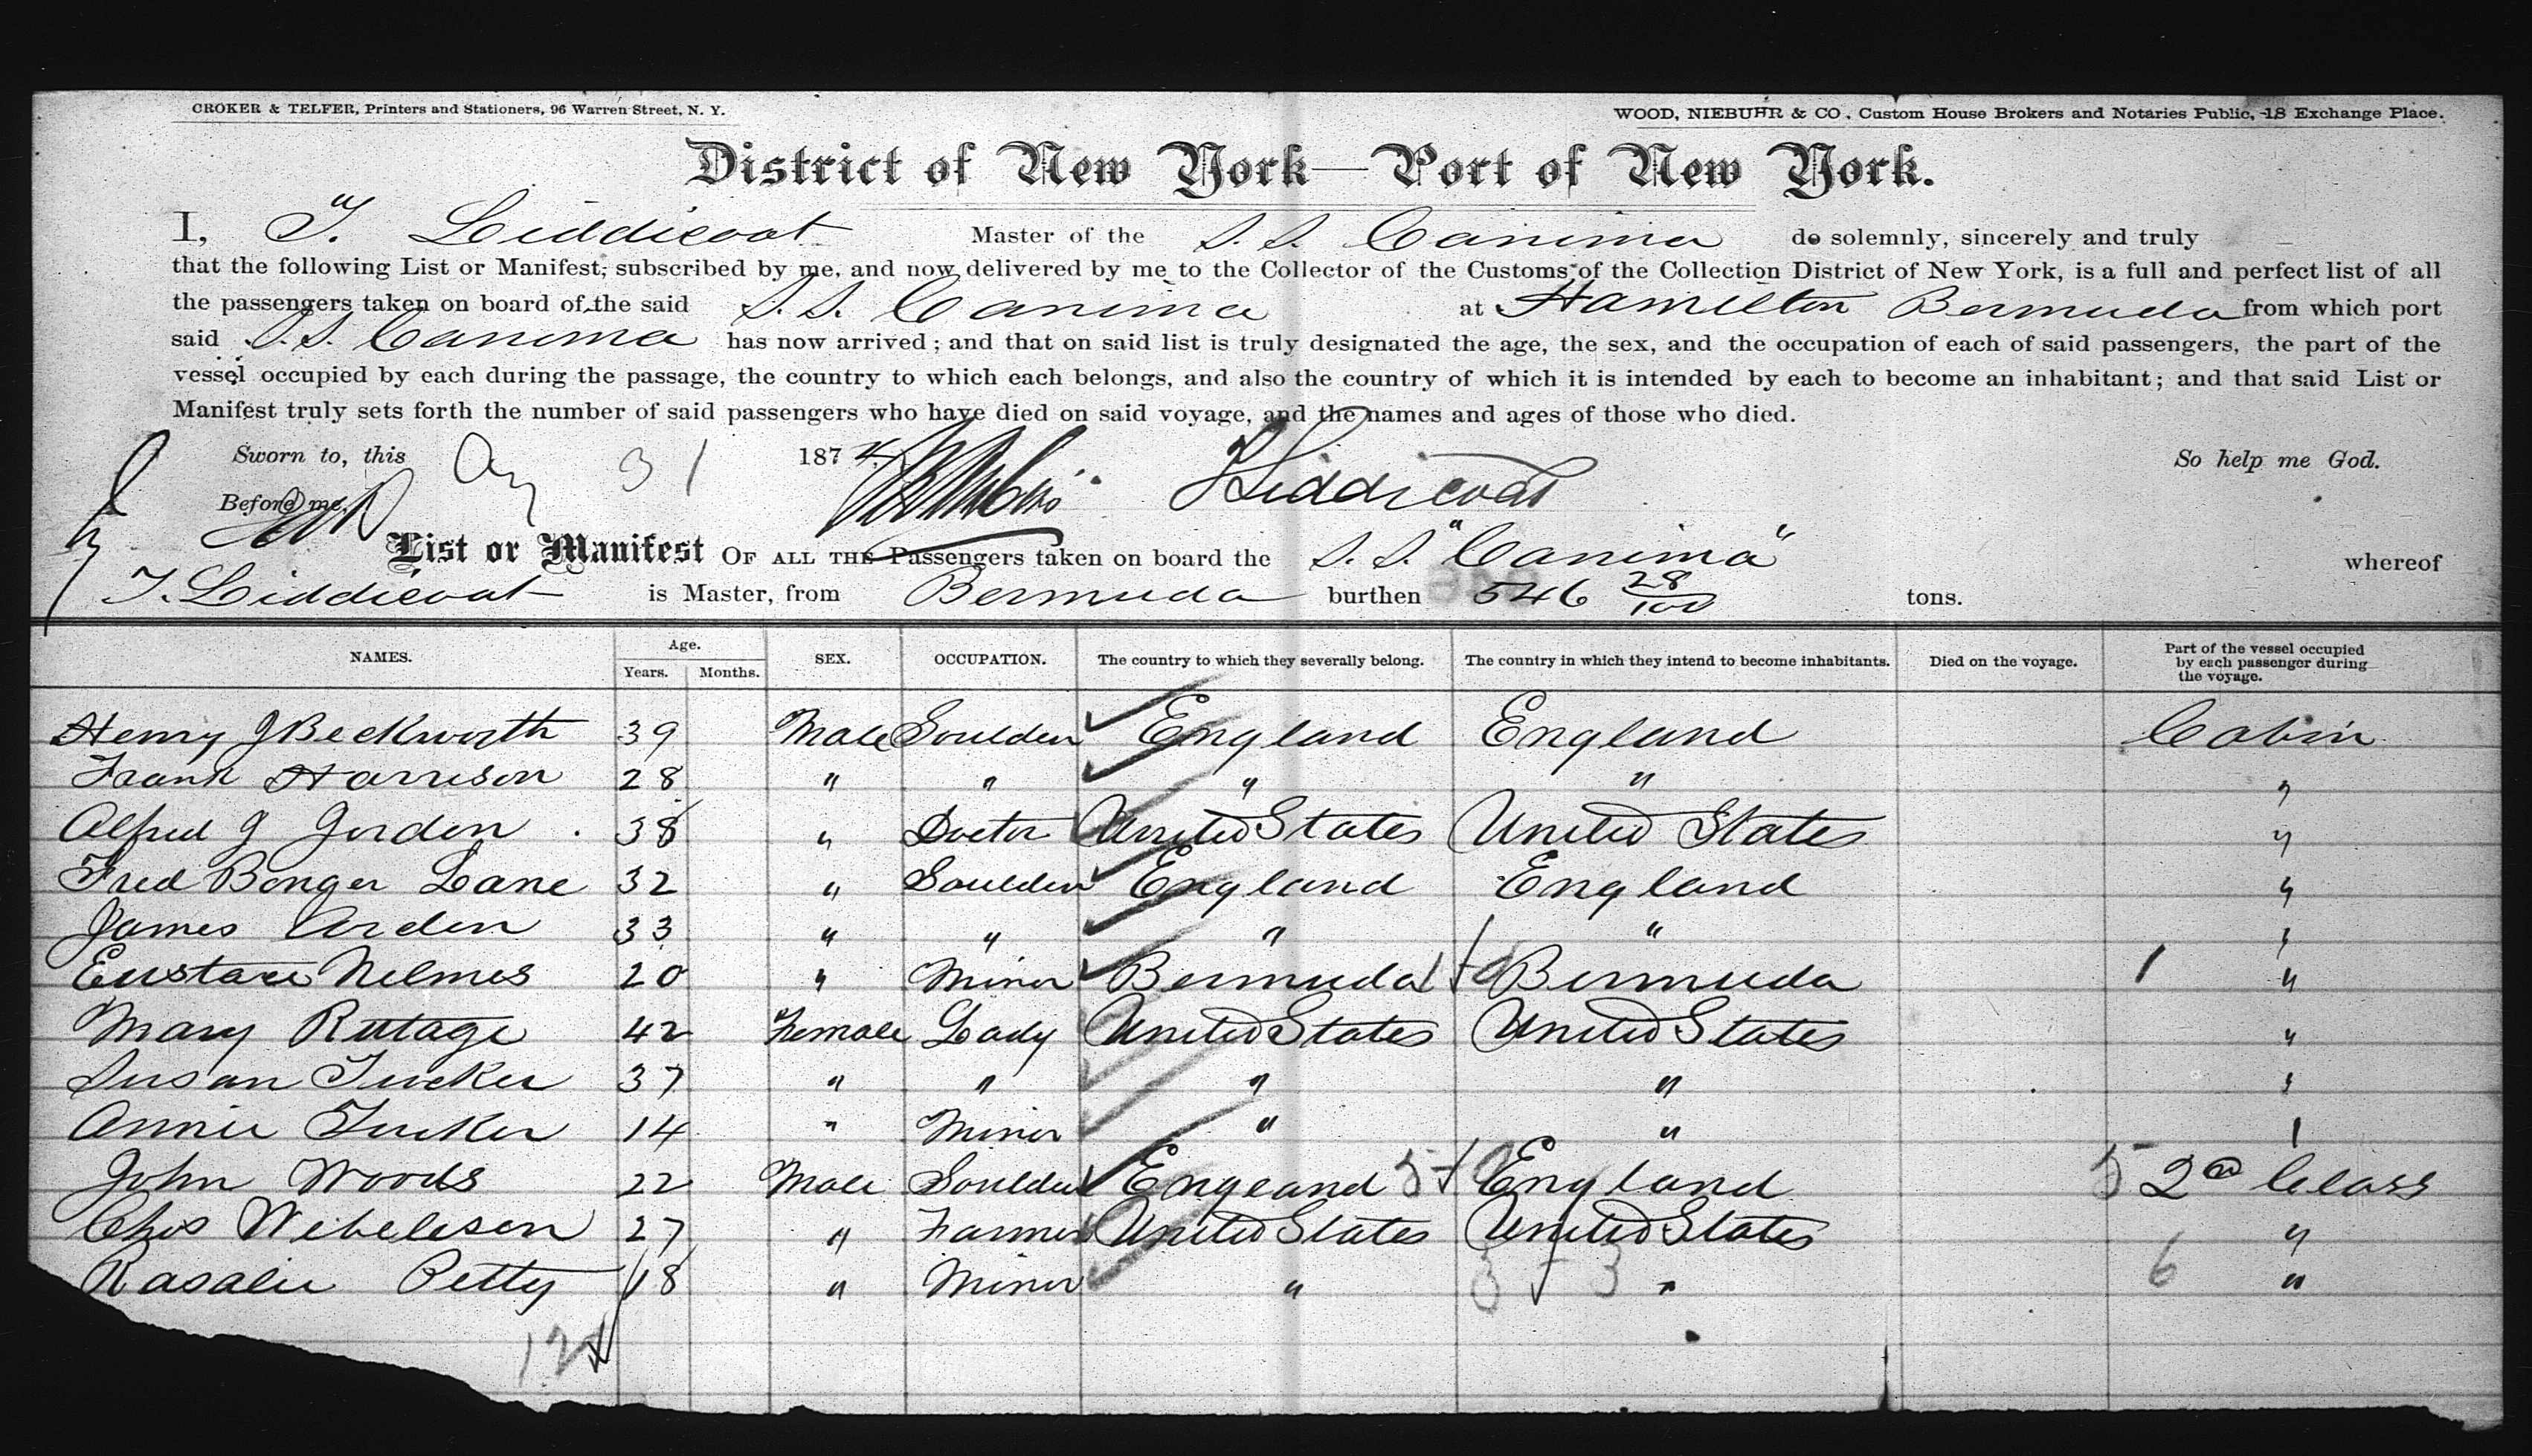 CROKER & TELFER, Printers and Stationers, 96 Warren Street, N. Y. WOOD, NIEBUHR & CO., Custom House Brokers and Notaries Public, 18 Exchange Place.
District of New York—Port of New York.
I, T. Liddicoat Master of the S.S. Canima do solemnly, sincerely and truly
that the following List or Manifest, subscribed by me, and now delivered by me to the Collector of the Customs of the Collection District of New York, is a full and perfect list of all
the passengers taken on board of the said S.S. Canima at Hamilton Bermuda from which port
said S.S. Canima has now arrived; and that on said list is truly designated the age, the sex, and the occupation of each of said passengers, the part of the
vessel occupied by each during the passage, the country to which each belongs, and also the country of which it is intended by each to become an inhabitant; and that said List or
Manifest truly sets forth the number of said passengers who have died on said voyage, and the names and ages of those who died.
Sworn to, this Aug 31 1874 T Liddicoat So help me God.
Before me,
List or Manifest OF ALL THE Passengers taken on board the S.S. "Canima" whereof
T. Liddicoat is Master, from Bermuda burthen 546 28/100 tons.
NAMES. Age. Years. Months. SEX. OCCUPATION. The country to which they severally belong. The country in which they intend to become inhabitants. Died on the voyage. Part of the vessel occupied by each passenger during the voyage.
Henry J Beckworth 39 Male Soulder England England Cabin
Frank Harrison 28 " " " " "
Alfred J Jordon 38 " Doctor United States United States "
Fred Bonger Lane 32 " Soulder England England "
James Arden 33 " " " " "
Eustace Nelmes 20 " Minor Bermuda Bermuda 1 "
Mary Rutage 42 Female Lady United States United States "
Susan Tucker 37 " " " " "
Annie Tucker 14 " Minor " " "
John Woods 22 Male Soulder England England 5 2d Class
Chos Webeleson 27 " Farmer United States United States "
Rasalie Petty 18 " Minor " 3 3 " 6 "
12